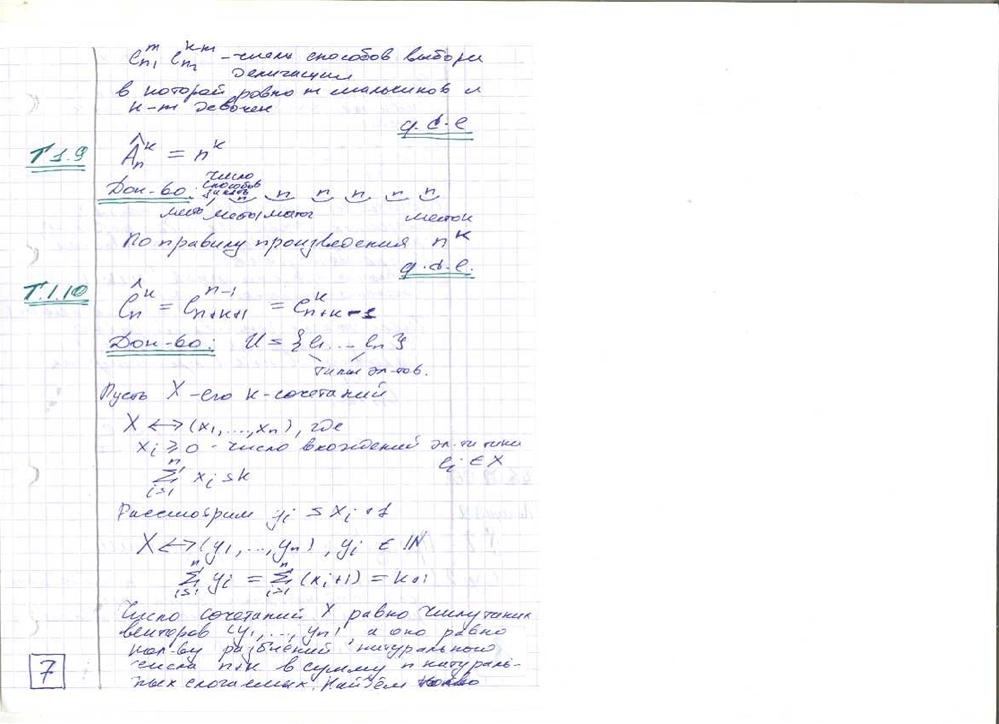 C_{n_1}^m C_{n_2}^{k-m} - число способов выбора
делегации
в которой ровно m мальчиков и
k-m девочек
ч.т.д
Т 1.9 Â_n^k = n^k
Док-во: число способов n n n n n
место место место местой
По правилу произведения n^k
ч.т.д.
Т.1.10 Ĉ_n^k = C_{n+k+1}^{n-1} = C_{n+k-1}^k
Док-во: U = {e_1 ... e_n}
типы эл-тов.
Пусть X - его k-сочетаний
X ↔ (x_1, ..., x_n), где
x_i ≥ 0 - число вхождений эл-та типа
e_i ∈ X
∑_{i=1}^n x_i = k
Рассмотрим y_i = x_i + 1
X ↔ (y_1, ..., y_n), y_i ∈ ℕ
∑_{i=1}^n y_i = ∑_{i=1}^n (x_i+1) = k+n
Число сочетаний X равно числу таких
векторов (y_1, ..., y_n), а оно равно
кол-ву разбиений натурального
числа n+k в сумму n натураль-
7 ных слагаемых. Найдём